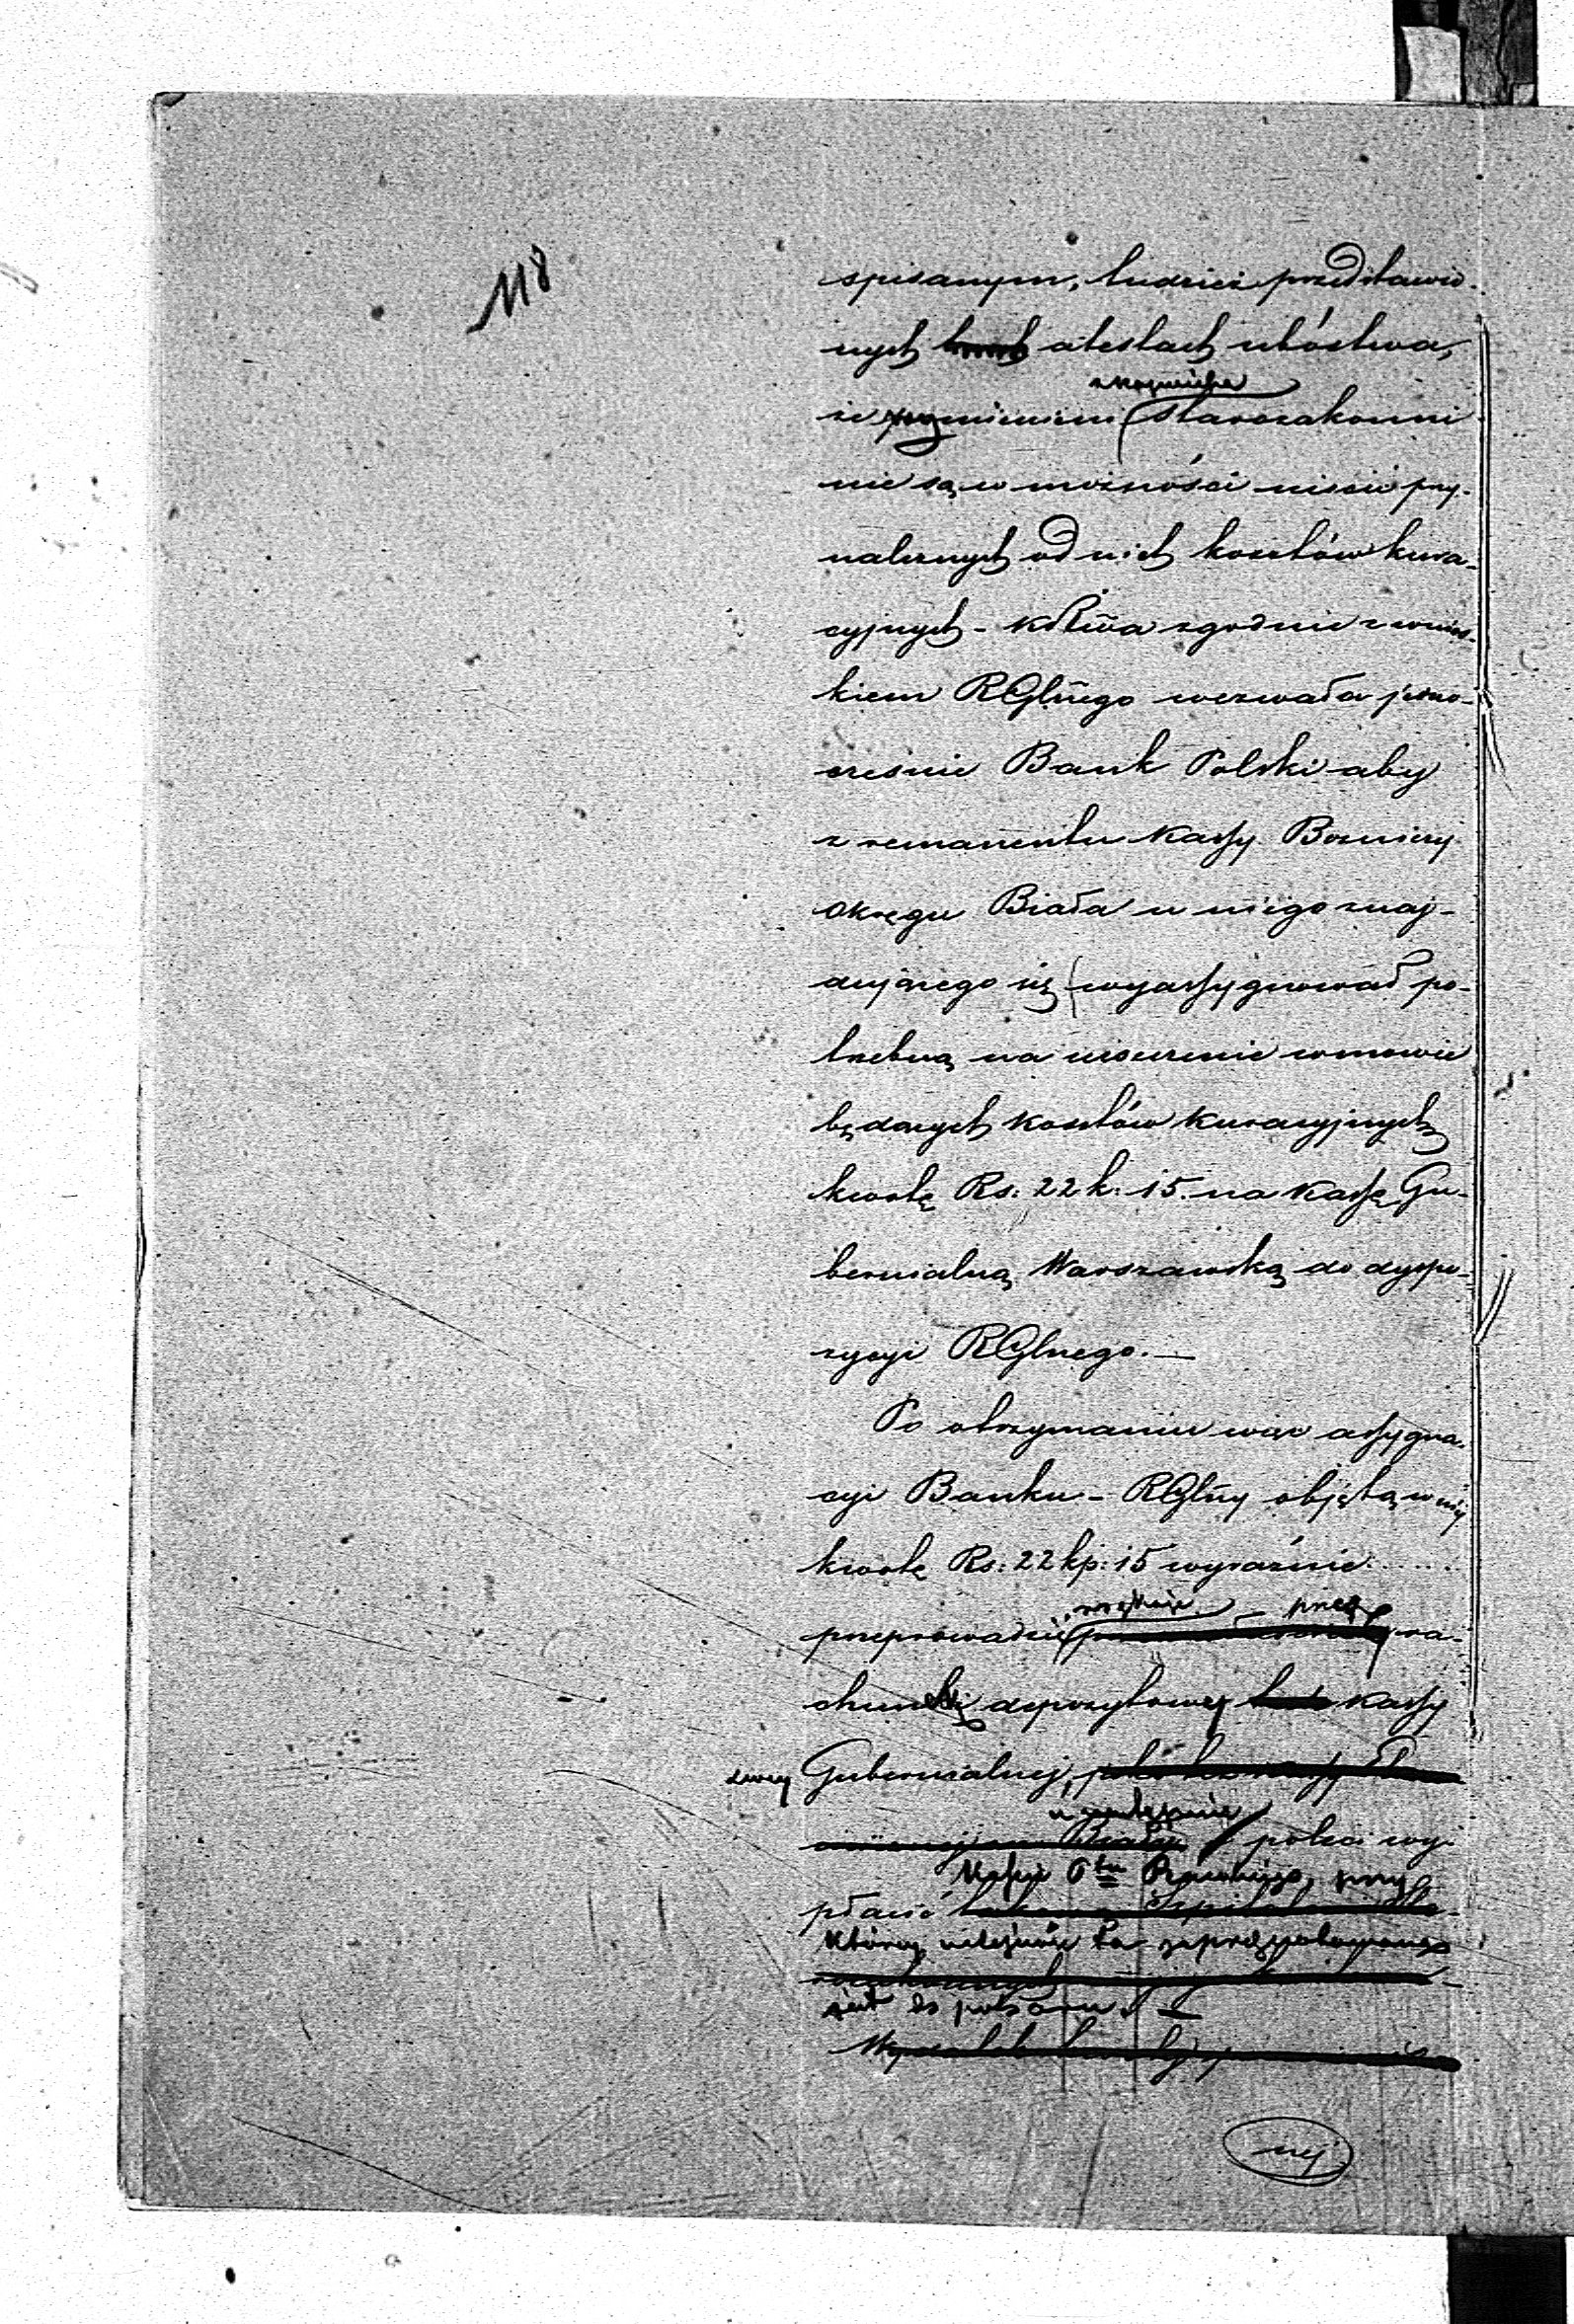 118
spisanym, tudzież przedstawio-
nych atestach ubóstwa,
że starozakonni
nie są w możności uiścić przy-
należnych od nich kosztów kura-
cyjnych - zgodnie z wnios-
kiem RGlnego wezwała jedno-
cześnie Bank Polski aby
z remanentu Kassy Bożniczej
Okręgu Biała u niego znaj-
dującego się wyassygnował po-
trzebną na uiszczenie w mowie
będących kosztów kuracyjnych
kwotę Rs: 22 k: 15. na Kassę Gu-
bernialną Warszawską do dyspo-
zycyi RGlnego. —
Po otrzymaniu więc assygna-
cyi Banku - RGlny objętą w niej
kwotę Rs: 22 kp: 15 wyraźnie
przeprowadzić przez ra-
chunki depozytowe Kassy
Gubernialnej,
poleci wy-
Kassie Ptu przy
płacić
której należność ta zaprenotowaną
jest do poboru. —
nej